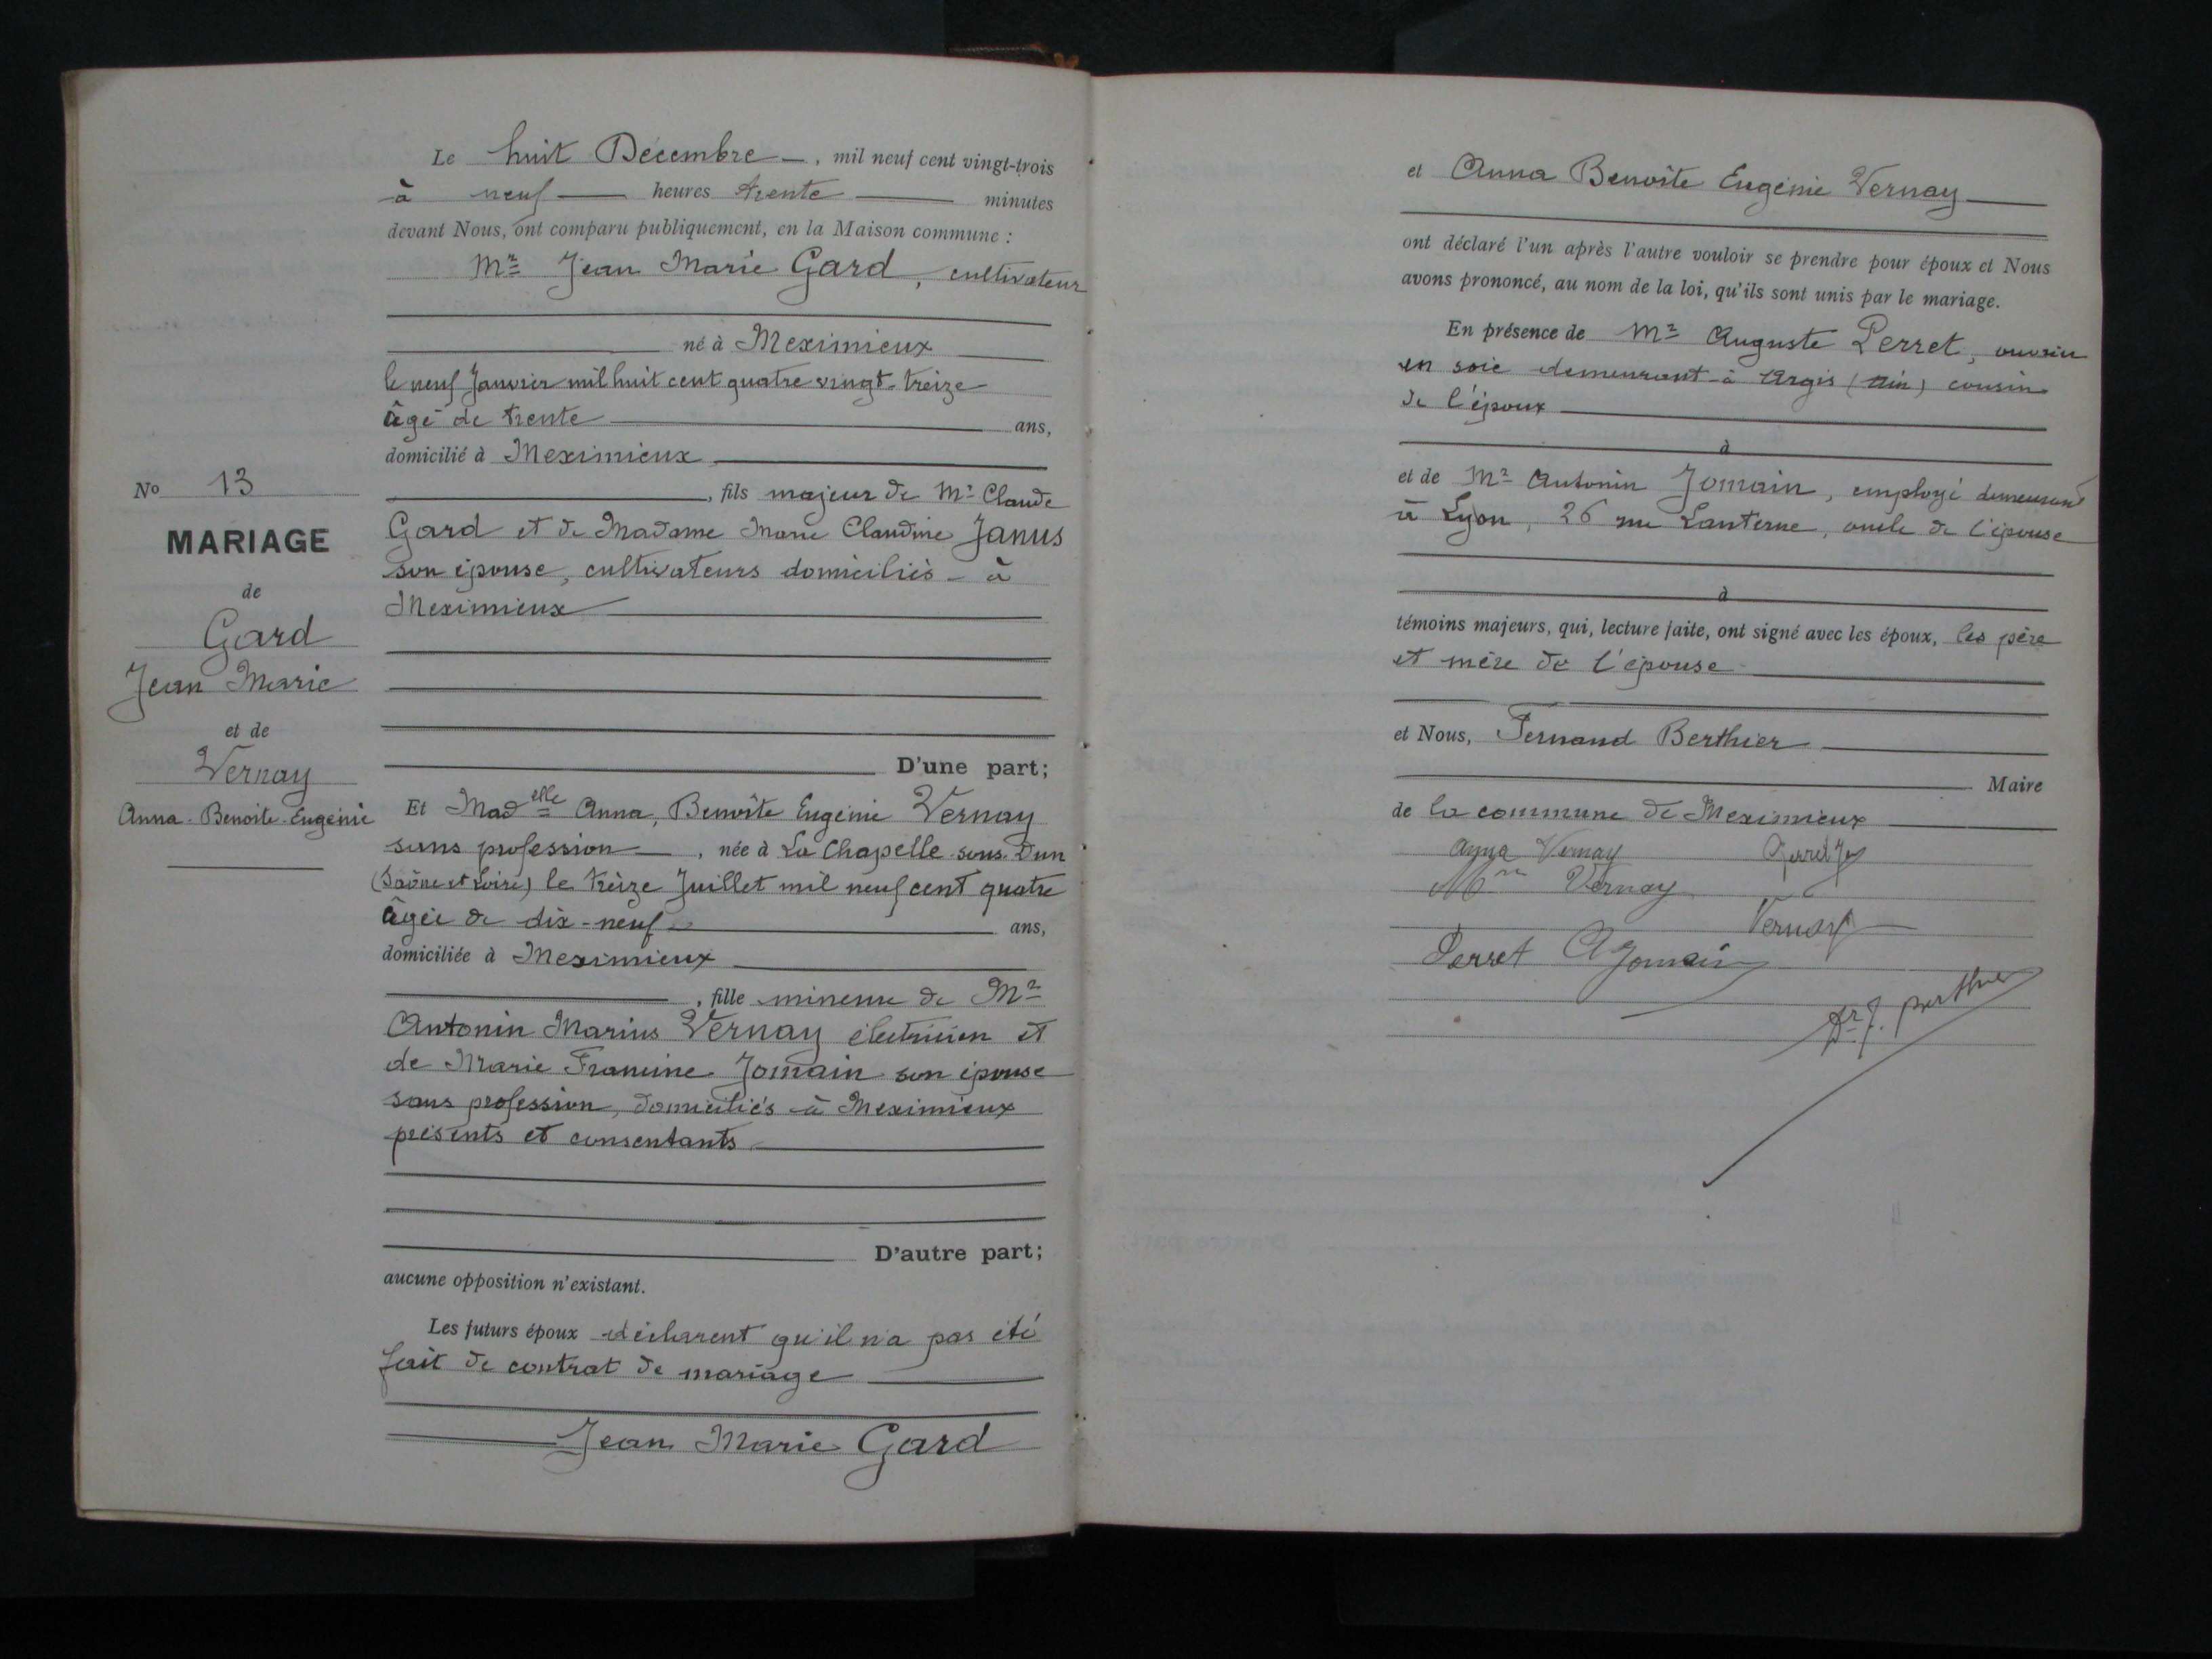 No 13
MARIAGE
de
Gard
Jean Marie
et de
Vernay
Anna-Benoite-Eugénie
Le huit Décembre, mil neuf cent vingt-trois
à neuf heures trente minutes
devant Nous, ont comparu publiquement, en la Maison commune :
Mr Jean Marie Gard, cultivateur
né à Meximieux
le neuf Janvier mil huit cent quatre vingt-treize
âgé de trente ans,
domicilié à Meximieux
, fils majeur de Mr Claude
Gard et de Madame Marie Claudine Janus
son épouse, cultivateurs domiciliés à
Meximieux
D'une part;
Et Madelle Anna, Benoîte Eugénie Vernay
sans profession, née à La Chapelle sous Dun
(Saône et Loire) le treize Juillet mil neuf cent quatre
âgée de dix-neuf ans,
domiciliée à Meximieux
, fille mineure de Mr
Antonin Marius Vernay électricien et
de Marie Francine Jomain son épouse
sans profession, domiciliés à Meximieux
présents et consentants
D'autre part;
aucune opposition n'existant.
Les futurs époux déclarent qu'il n'a pas été
fait de contrat de mariage
Jean Marie Gard
et Anna Benoîte Eugénie Vernay
ont déclaré l'un après l'autre vouloir se prendre pour époux et Nous
avons prononcé, au nom de la loi, qu'ils sont unis par le mariage.
En présence de Mr Auguste Perret, ouvrier
en soie demeurant à Argis (Ain) cousin
de l'époux
à
et de Mr Antonin Jomain, employé demeurant
à Lyon, 26 rue Lanterne, oncle de l'épouse
à
témoins majeurs, qui, lecture faite, ont signé avec les époux, les père
et mère de l'épouse
et Nous, Fernand Berthier
Maire
de la commune de Meximieux
Anna Vernay
Vernay
Vernay
Perret A Jomain
Dr F. Berthier